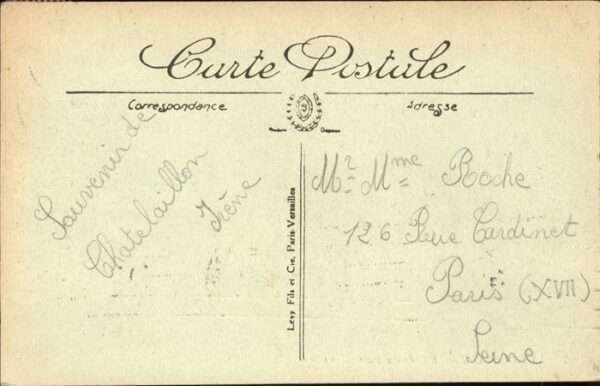 Carte Postale
Correspondance
Adresse
Souvenir de
Chatelaillon
Irène
Levy Fils et Cie, Paris Versailles
Mr. Mme Roche
126 Rue Cardinet
Paris (XVII)
Seine